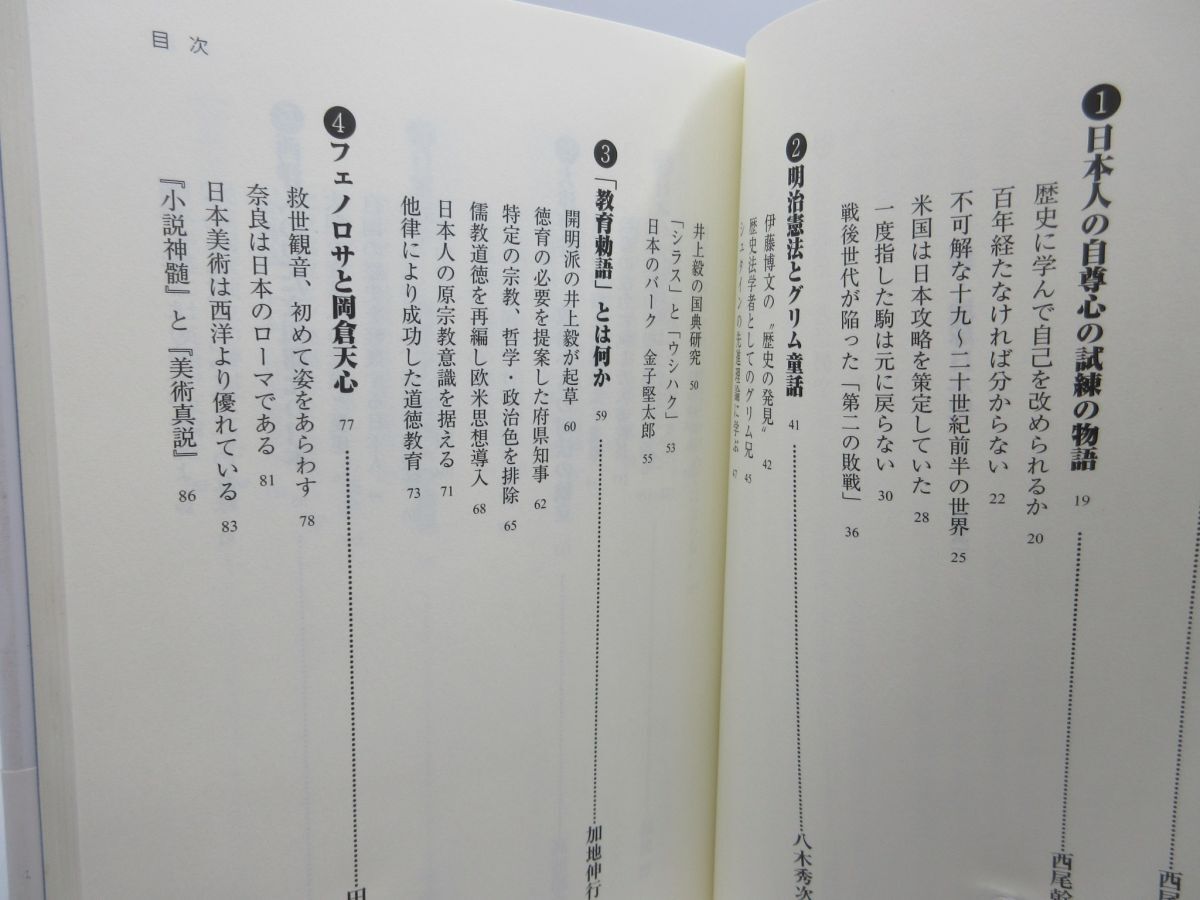 ❶日本人の自尊心の試練の物語 19 西尾幹
歴史に学んで自己を改められるか 20
百年経たなければ分からない 22
不可解な十九〜二十世紀前半の世界 25
米国は日本攻略を策定していた 28
一度指した駒は元に戻らない 30
戦後世代が陥った「第二の敗戦」 36
❷明治憲法とグリム童話 41 八木秀次
伊藤博文の〝歴史の発見〟 42
歴史法学者としてのグリム兄 45
シュタインの先進理論に学ぶ 47
井上毅の国典研究 50
「シラス」と「ウシハク」 53
日本のバーク 金子堅太郎 55
目次
❸「教育勅語」とは何か 59 加地伸行
開明派の井上毅が起草 60
徳育の必要を提案した府県知事 62
特定の宗教、哲学・政治色を排除 65
儒教道徳を再編し欧米思想導入 68
日本人の原宗教意識を据える 71
他律により成功した道徳教育 73
❹フェノロサと岡倉天心 77
救世観音、初めて姿をあらわす 78
奈良は日本のローマである 81
日本美術は西洋より優れている 83
『小説神髄』と『美術真説』 86